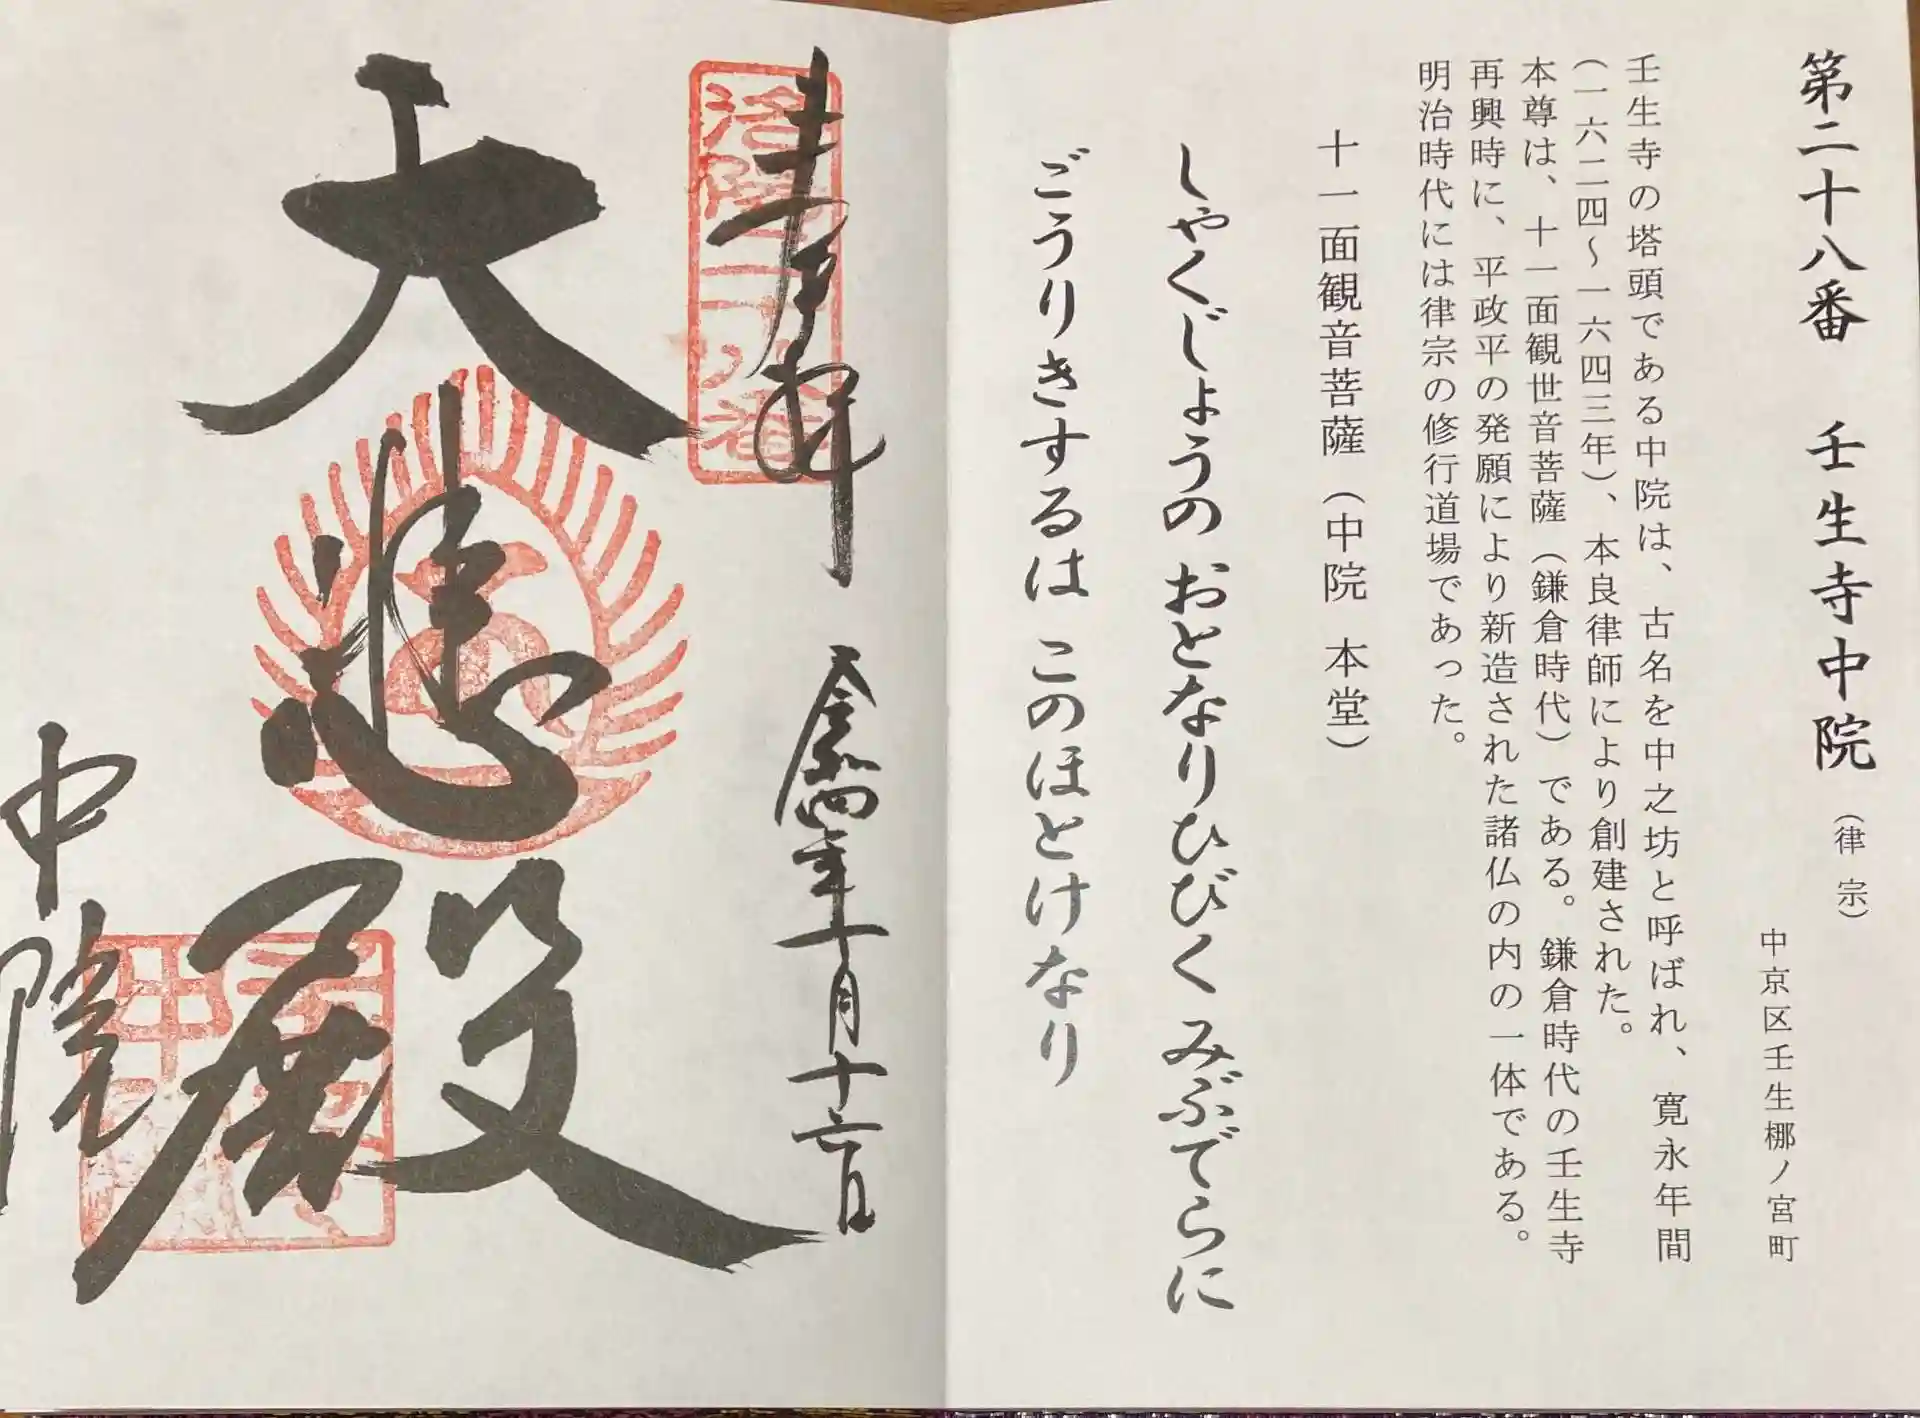 第二十八番 壬生寺中院（律宗）
中京区壬生梛ノ宮町
壬生寺の塔頭である中院は、古名を中之坊と呼ばれ、寛永年間
（一六二四～一六四三年）、本良律師により創建された。
本尊は、十一面観世音菩薩（鎌倉時代）である。鎌倉時代の壬生寺
再興時に、平政平の発願により新造された諸仏の内の一体である。
明治時代には律宗の修行道場であった。
十一面観音菩薩（中院 本堂）
しゃくじょうの おとなりひびく みぶでらに
ごうりきするは このほとけなり
奉拝 令和四年十月十六日
洛陽二十八番
大悲殿
中院